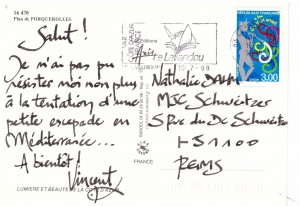 16 470
Plan de PORQUEROLLES
Salut !
Je n'ai pas pu
résister moi non plus
à la tentation d'une
petite escapade en
Méditerranée...
A bientôt !
Vincent
LUMIERE ET BEAUTE DE LA COTE D'AZUR
FRANCE
le Lavandou
RÉPUBLIQUE FRANÇAISE
3,00
Nathalie
MJC Schweitzer
5 rue du Dr Schweitzer
51100
REIMS